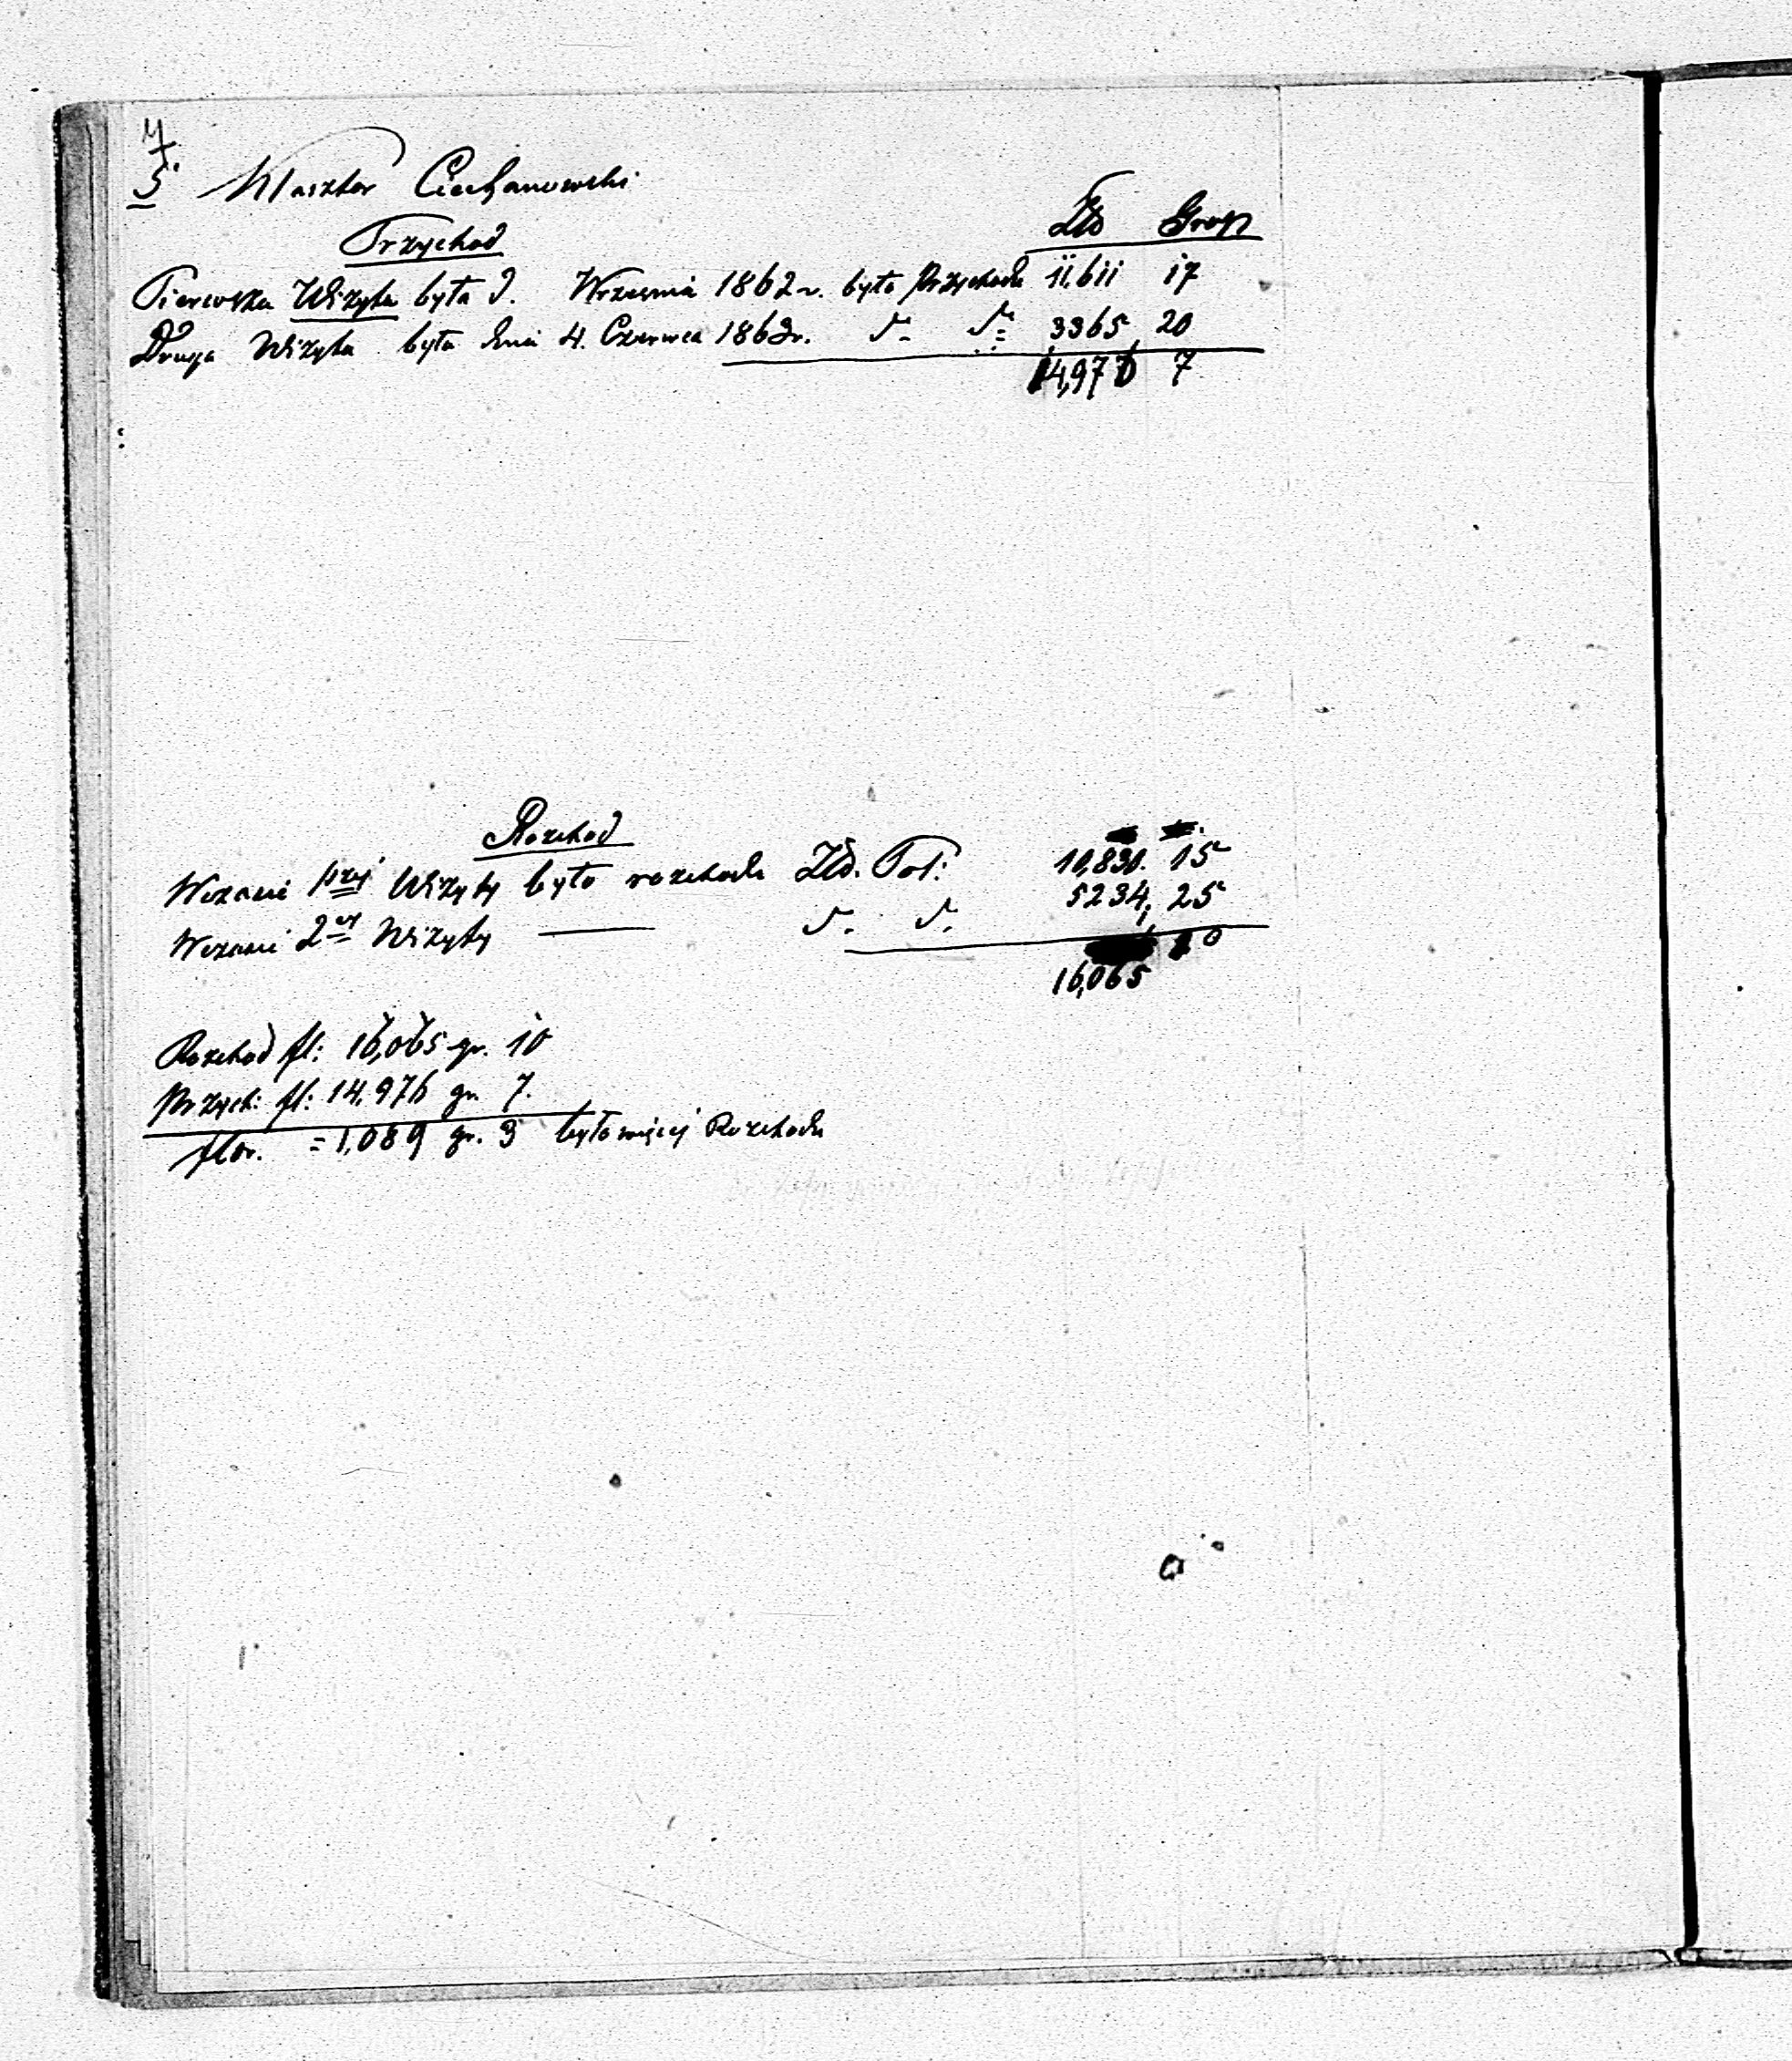 4
5. Klasztor Ciechanowski
Złd Groszy
Przychod
Pierwsza Wizyta była d. Wrzesnia 1862 r. było Przychodu 11,611 17
Druga Wizyta była dnia 4. Czerwca 1863 r. d. d. 3365 20
14,977 7
Rozchod
Wczasie 1szej Wizyty było rozchodu Złd. Pol: 10,830. 15
Wczasie 2ej Wizyty — d. d. 5234, 25
10
16,065
Rozchod fl: 16,065 gr. 10
Przych: fl: 14,976 gr. 7.
flor. = 1,089 gr. 3 było więcej Rozchodu